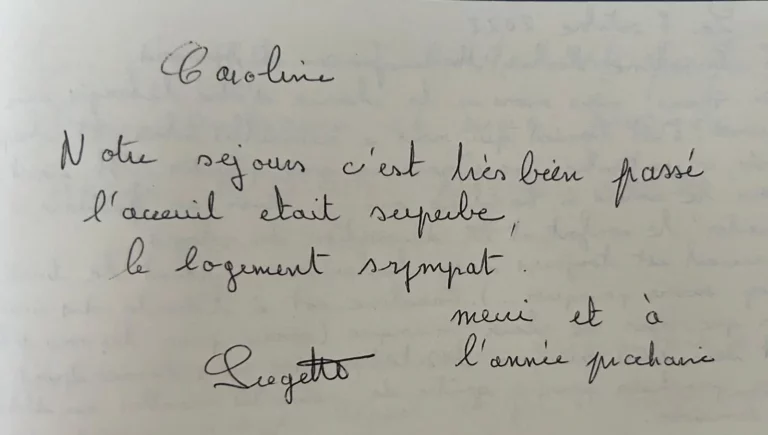 Caroline
Notre séjours c'est très bien passé
l'acceuil etait superbe,
le logement sympat.
merci et à
l'année prochaine